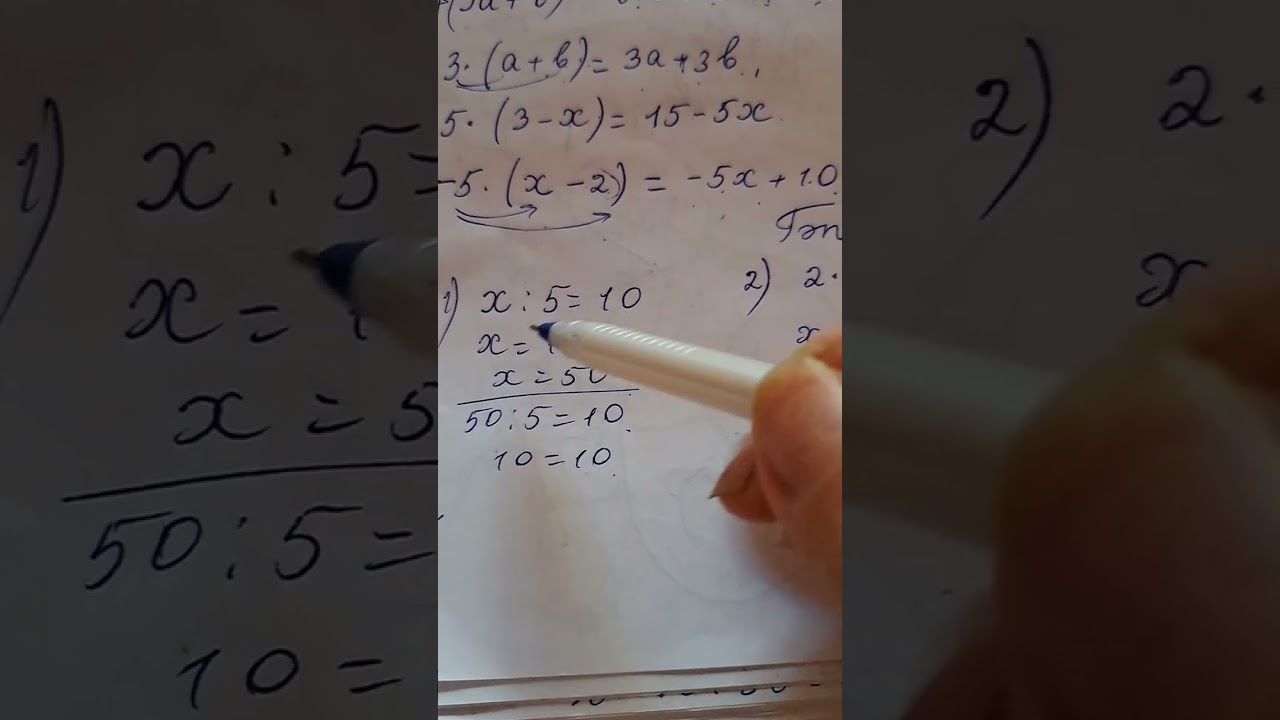 3·(a+b)=3a+3b,
5·(3-x)=15-5x
-5·(x-2)=-5x+10
1) x:5=10
x=
x=50
50:5=10
10=10
2) 2·
x